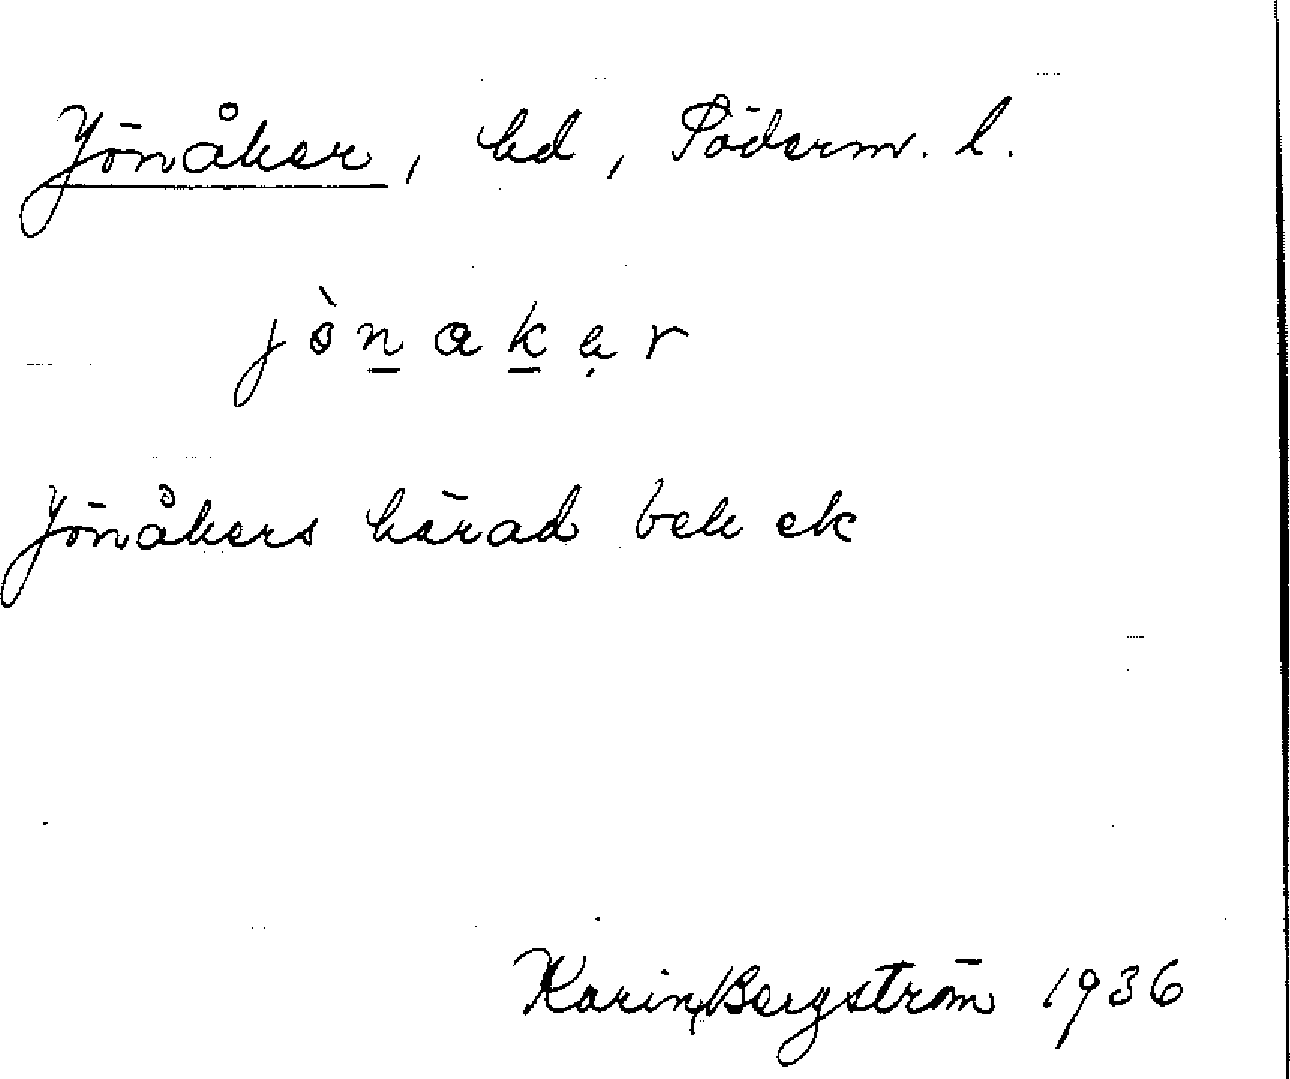 Jönåker, hd, Söderm. l.
jònakər
Jönåkers härad
Karin Bergström 1936